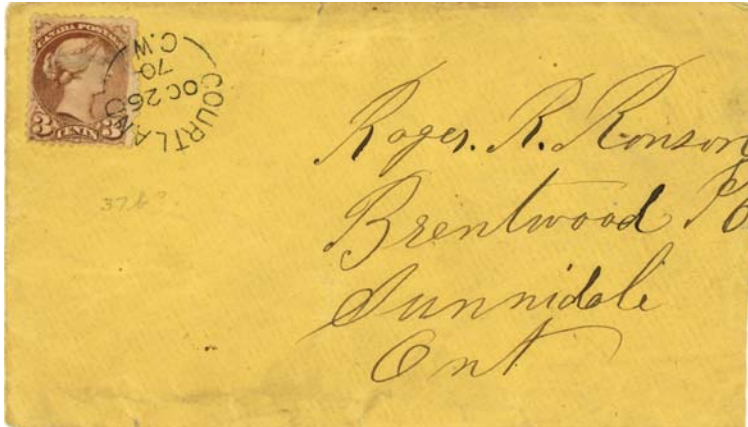 CANADA POSTAGE
3 CENTS 3
COURTLAN
OC 26
70
C.W
Roger. R. Ronson
Brentwood P
Sunnidale
Ont